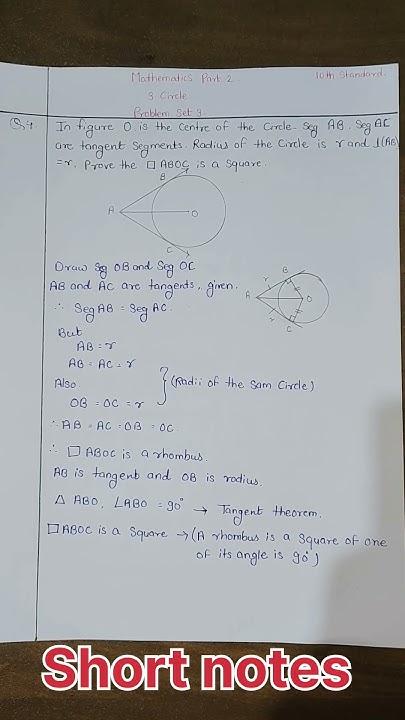 Mathematics Part 2 10th Standard.
3 Circle
Problem Set 3
Q4. In figure O is the Centre of the Circle. Seg AB, Seg AC
are tangent Segments. Radius of the Circle is r and l(AB)
=r. Prove the □ ABOC is a Square.
B
A
O
C
Draw Seg OB and Seg OC
AB and AC are tangents, given.
∴ Seg AB = Seg AC.
B
r
A
O
r
C
But
AB = r
AB = AC = r
Also
(Radii of the Sam Circle)
OB = OC = r
∴ AB = AC = OB = OC
∴ □ ABOC is a rhombus.
AB is tangent and OB is radius.
△ ABO, ∠ABO = 90° → Tangent theorem.
□ABOC is a Square → (A rhombus is a square of one
of its angle is 90°)
Short notes